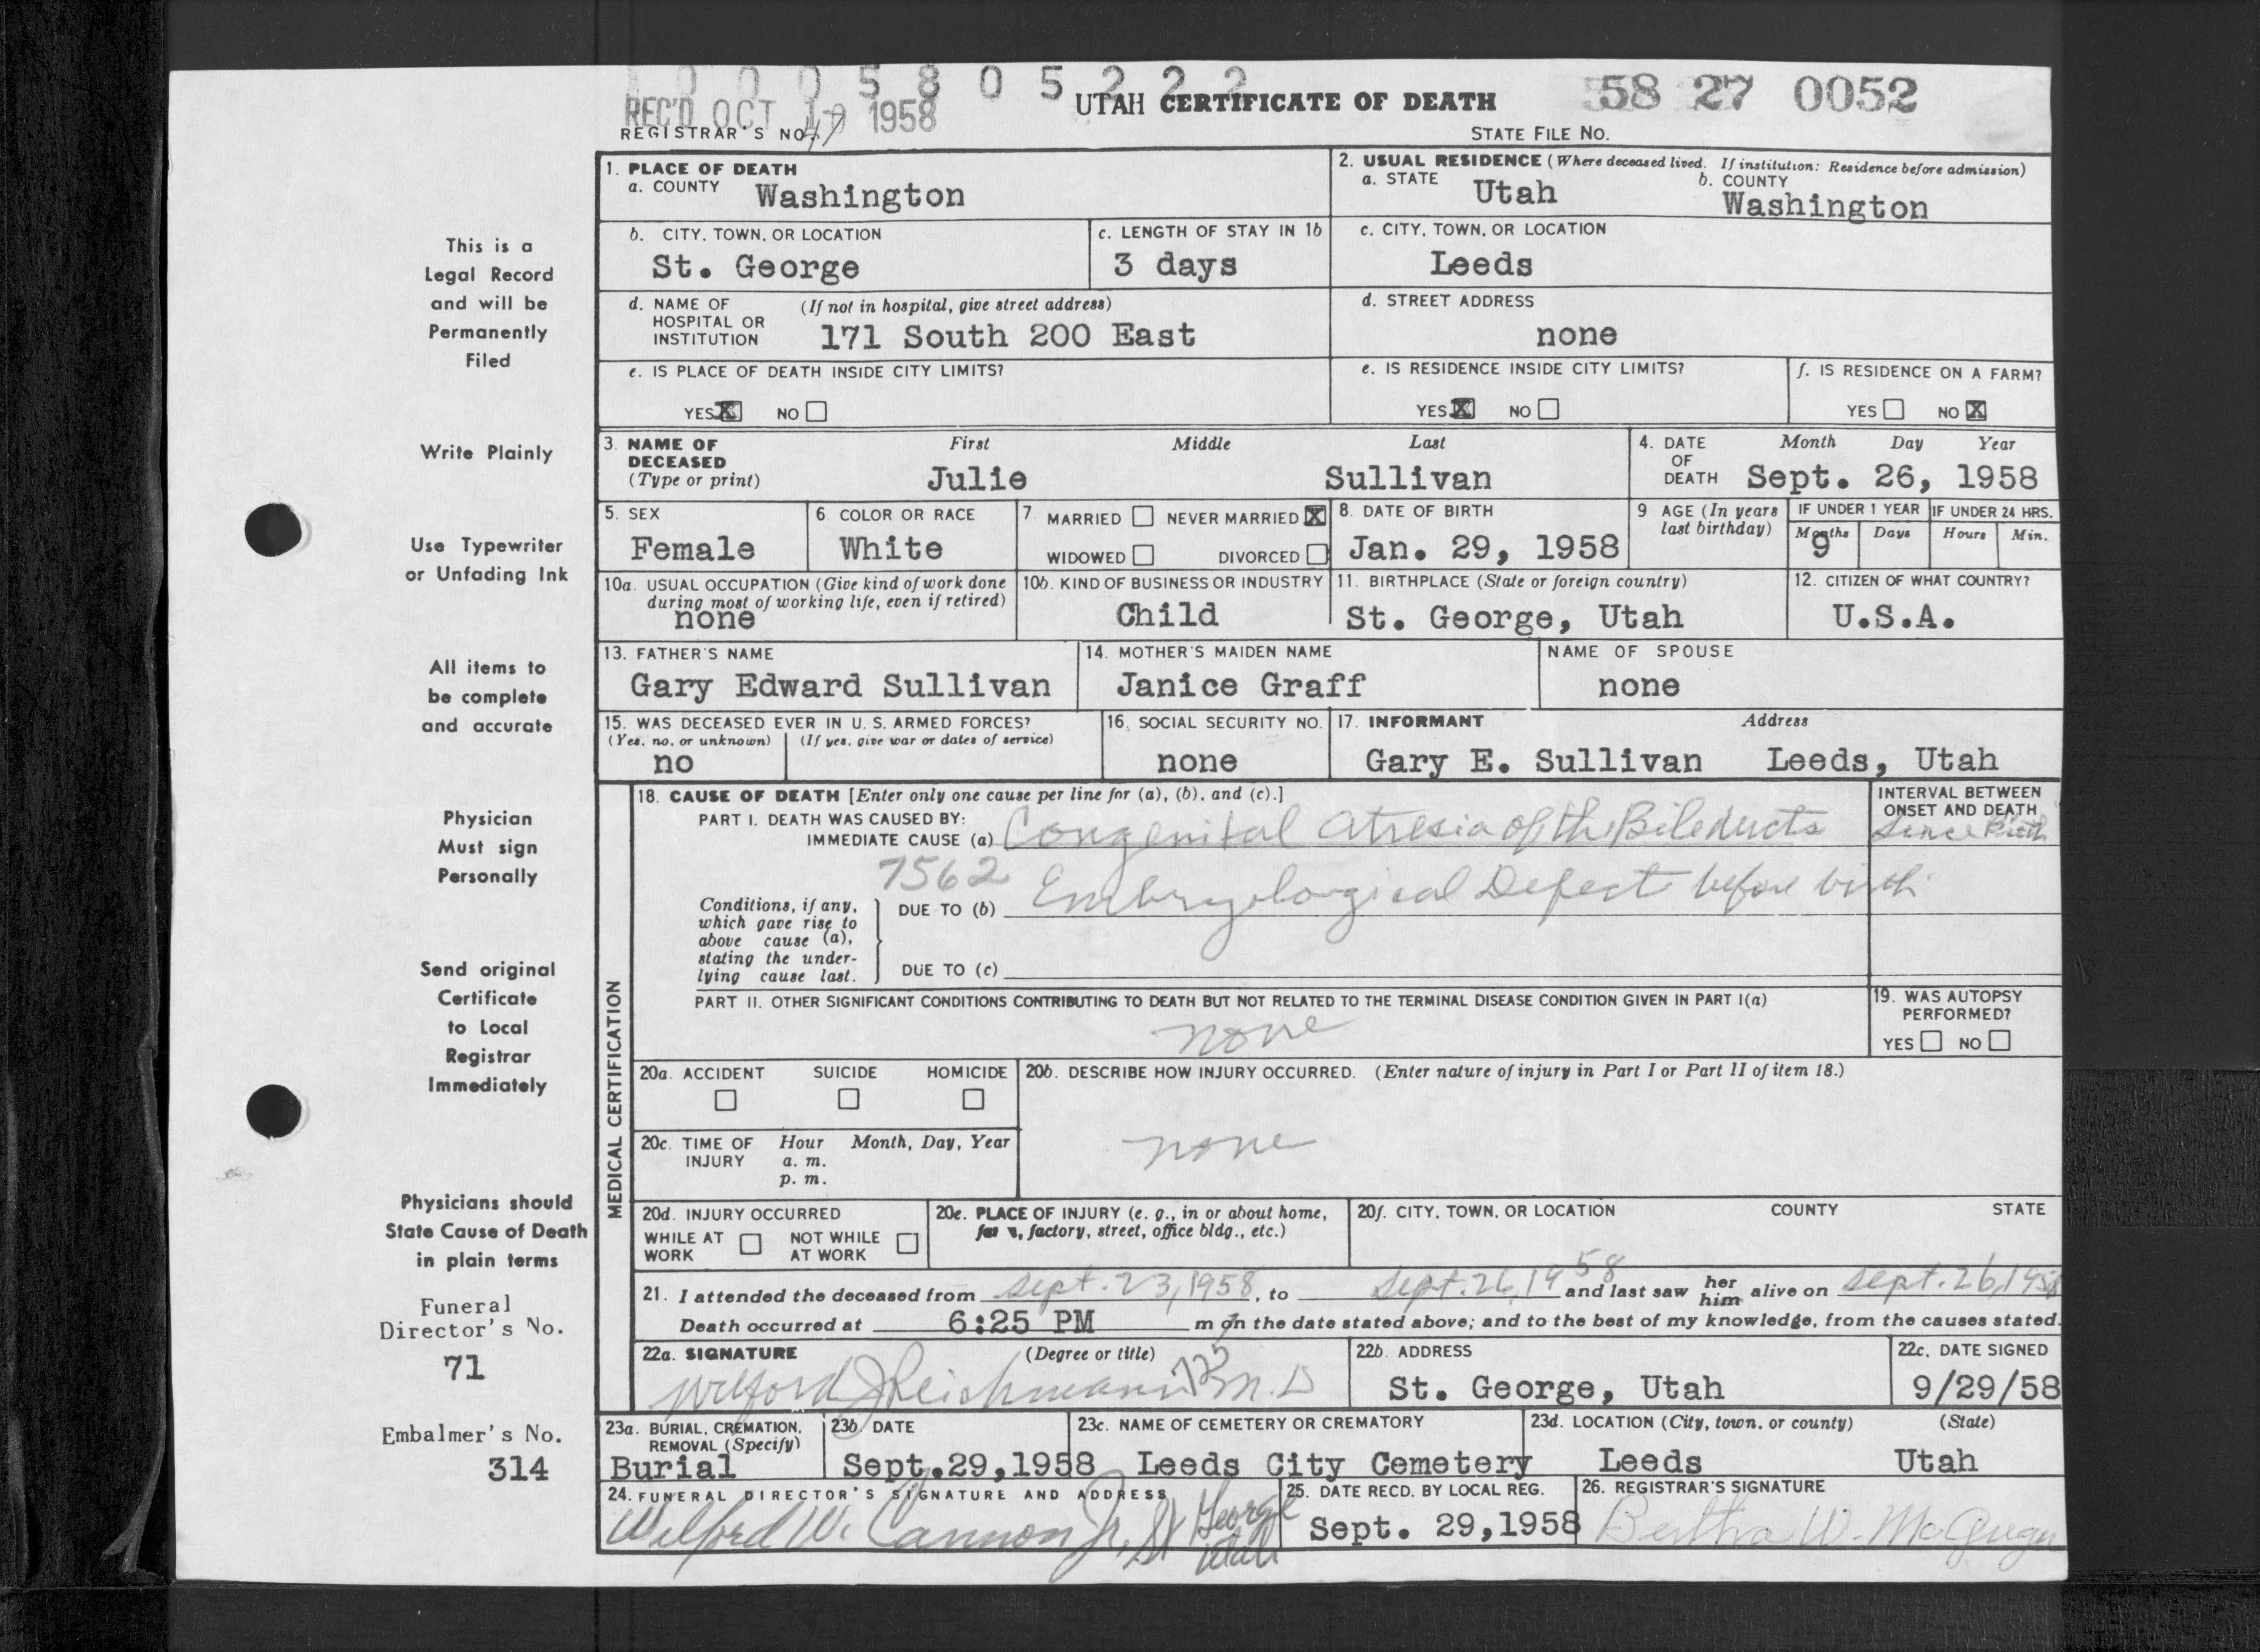 1 0 0 0 5 8 0 5 2 2 2
REC'D OCT 17 1958
UTAH CERTIFICATE OF DEATH
58 27 0052
REGISTRAR'S NO. 47
STATE FILE NO.
1. PLACE OF DEATH
a. COUNTY Washington
2. USUAL RESIDENCE (Where deceased lived. If institution: Residence before admission)
a. STATE Utah b. COUNTY Washington
b. CITY, TOWN, OR LOCATION St. George
c. LENGTH OF STAY IN 1b 3 days
c. CITY, TOWN, OR LOCATION Leeds
d. NAME OF HOSPITAL OR INSTITUTION (If not in hospital, give street address) 171 South 200 East
d. STREET ADDRESS none
e. IS PLACE OF DEATH INSIDE CITY LIMITS?
YES X NO
e. IS RESIDENCE INSIDE CITY LIMITS?
YES X NO
f. IS RESIDENCE ON A FARM?
YES NO X
3. NAME OF DECEASED (Type or print) First Middle Last
Julie Sullivan
4. DATE OF DEATH Month Day Year
Sept. 26, 1958
5. SEX Female
6. COLOR OR RACE White
7. MARRIED NEVER MARRIED X
WIDOWED DIVORCED
8. DATE OF BIRTH Jan. 29, 1958
9 AGE (In years last birthday)
IF UNDER 1 YEAR Months 9 Days
IF UNDER 24 HRS. Hours Min.
10a. USUAL OCCUPATION (Give kind of work done during most of working life, even if retired) none
10b. KIND OF BUSINESS OR INDUSTRY Child
11. BIRTHPLACE (State or foreign country) St. George, Utah
12. CITIZEN OF WHAT COUNTRY? U.S.A.
13. FATHER'S NAME Gary Edward Sullivan
14. MOTHER'S MAIDEN NAME Janice Graff
NAME OF SPOUSE none
15. WAS DECEASED EVER IN U. S. ARMED FORCES?
(Yes, no, or unknown) (If yes, give war or dates of service)
no
16. SOCIAL SECURITY NO. none
17. INFORMANT Address
Gary E. Sullivan Leeds, Utah
MEDICAL CERTIFICATION
18. CAUSE OF DEATH [Enter only one cause per line for (a), (b), and (c).]
PART I. DEATH WAS CAUSED BY:
IMMEDIATE CAUSE (a) Congenital Atresia of the Bile ducts
INTERVAL BETWEEN ONSET AND DEATH
Since Birth
7562
Conditions, if any, which gave rise to above cause (a), stating the underlying cause last.
DUE TO (b) Embryological Defect before birth
DUE TO (c)
PART II. OTHER SIGNIFICANT CONDITIONS CONTRIBUTING TO DEATH BUT NOT RELATED TO THE TERMINAL DISEASE CONDITION GIVEN IN PART I(a)
none
19. WAS AUTOPSY PERFORMED?
YES NO
20a. ACCIDENT SUICIDE HOMICIDE
20b. DESCRIBE HOW INJURY OCCURRED. (Enter nature of injury in Part I or Part II of item 18.)
none
20c. TIME OF INJURY Hour Month, Day, Year
a. m.
p. m.
20d. INJURY OCCURRED
WHILE AT WORK NOT WHILE AT WORK
20e. PLACE OF INJURY (e. g., in or about home, farm, factory, street, office bldg., etc.)
20f. CITY, TOWN, OR LOCATION COUNTY STATE
21. I attended the deceased from Sept. 23, 1958, to Sept. 26, 1958 and last saw her him alive on Sept. 26, 1958
Death occurred at 6:25 PM m on the date stated above; and to the best of my knowledge, from the causes stated.
22a. SIGNATURE (Degree or title)
Wilford J Reichmann M.D
22b. ADDRESS St. George, Utah
22c. DATE SIGNED 9/29/58
23a. BURIAL, CREMATION, REMOVAL (Specify) Burial
23b. DATE Sept.29,1958
23c. NAME OF CEMETERY OR CREMATORY Leeds City Cemetery
23d. LOCATION (City, town, or county) (State)
Leeds Utah
24. FUNERAL DIRECTOR'S SIGNATURE AND ADDRESS
Wilford W. Cannon Jr, St George Utah
25. DATE RECD. BY LOCAL REG. Sept. 29,1958
26. REGISTRAR'S SIGNATURE Bertha W. McGregor
This is a
Legal Record
and will be
Permanently
Filed
Write Plainly
Use Typewriter
or Unfading Ink
All items to
be complete
and accurate
Physician
Must sign
Personally
Send original
Certificate
to Local
Registrar
Immediately
Physicians should
State Cause of Death
in plain terms
Funeral
Director's No.
71
Embalmer's No.
314